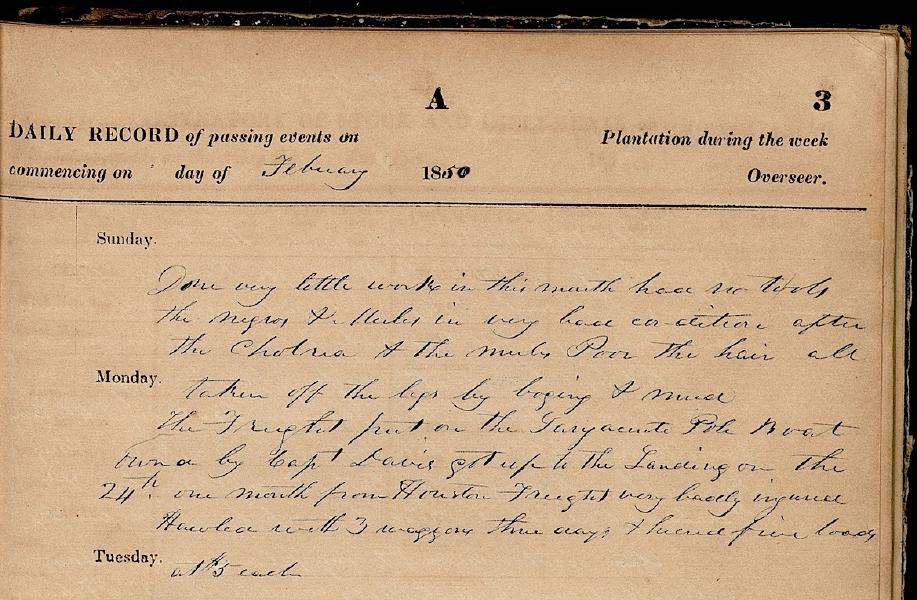 A
3
DAILY RECORD of passing events on Plantation during the week
commencing on day of Febuary 1850 Overseer.
Sunday.
Done very little work in this month had no tools
the negros & Mules in very bad condition after
the Cholria & the muls Poor the hair all
Monday.
taken off the legs by boging & mud
The Freight put on the Pole Boat
own a by Capt Davis got up to the Landing on the
24th. one month from Houston Freight very badly injured
Hawled with 3 waggons three days & hierd five loads
Tuesday.
at $5 each